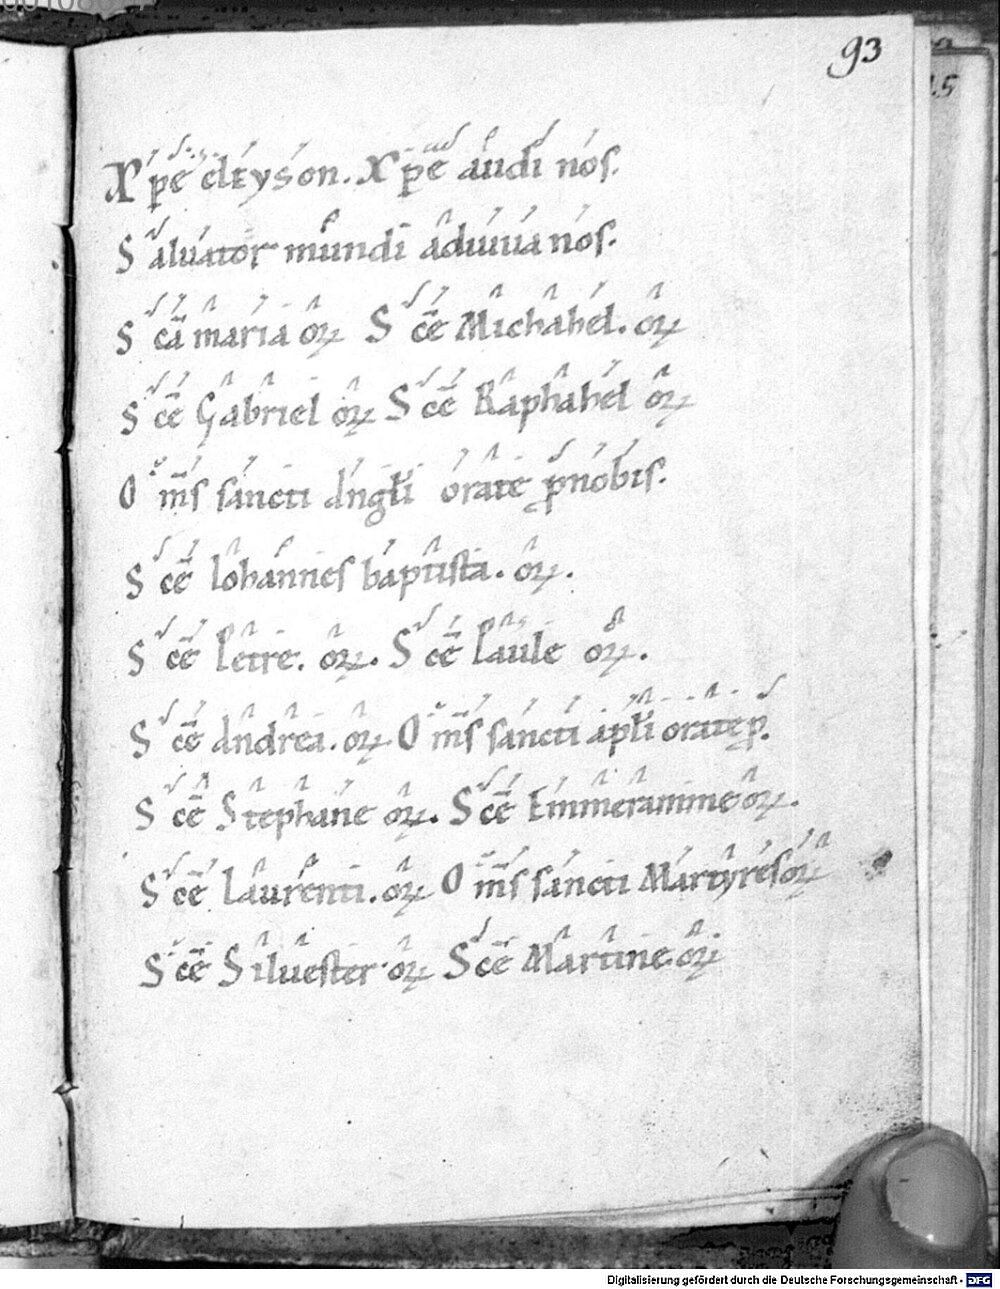 93
Xp̄e eleyson. Xp̄e audi nos.
Saluator mundi adiuua nos.
Sc̄a maria oꝝ Sc̄e Michahel. oꝝ
Sc̄e Gabriel oꝝ Sc̄e Raphahel oꝝ
Om̄s sancti angłi orate ꝓ nobis.
Sc̄e Iohannes baptista. oꝝ.
Sc̄e Petre. oꝝ. Sc̄e Paule oꝝ.
Sc̄e andrea. oꝝ Om̄s sancti apłi orate ꝓ.
Sc̄e Stephane oꝝ. Sc̄e Emmeramme oꝝ.
Sc̄e laurenti. oꝝ Om̄s sancti Martyres oꝝ
Sc̄e Siluester oꝝ Sc̄e Martine oꝝ
Digitalisierung gefördert durch die Deutsche Forschungsgemeinschaft - DFG